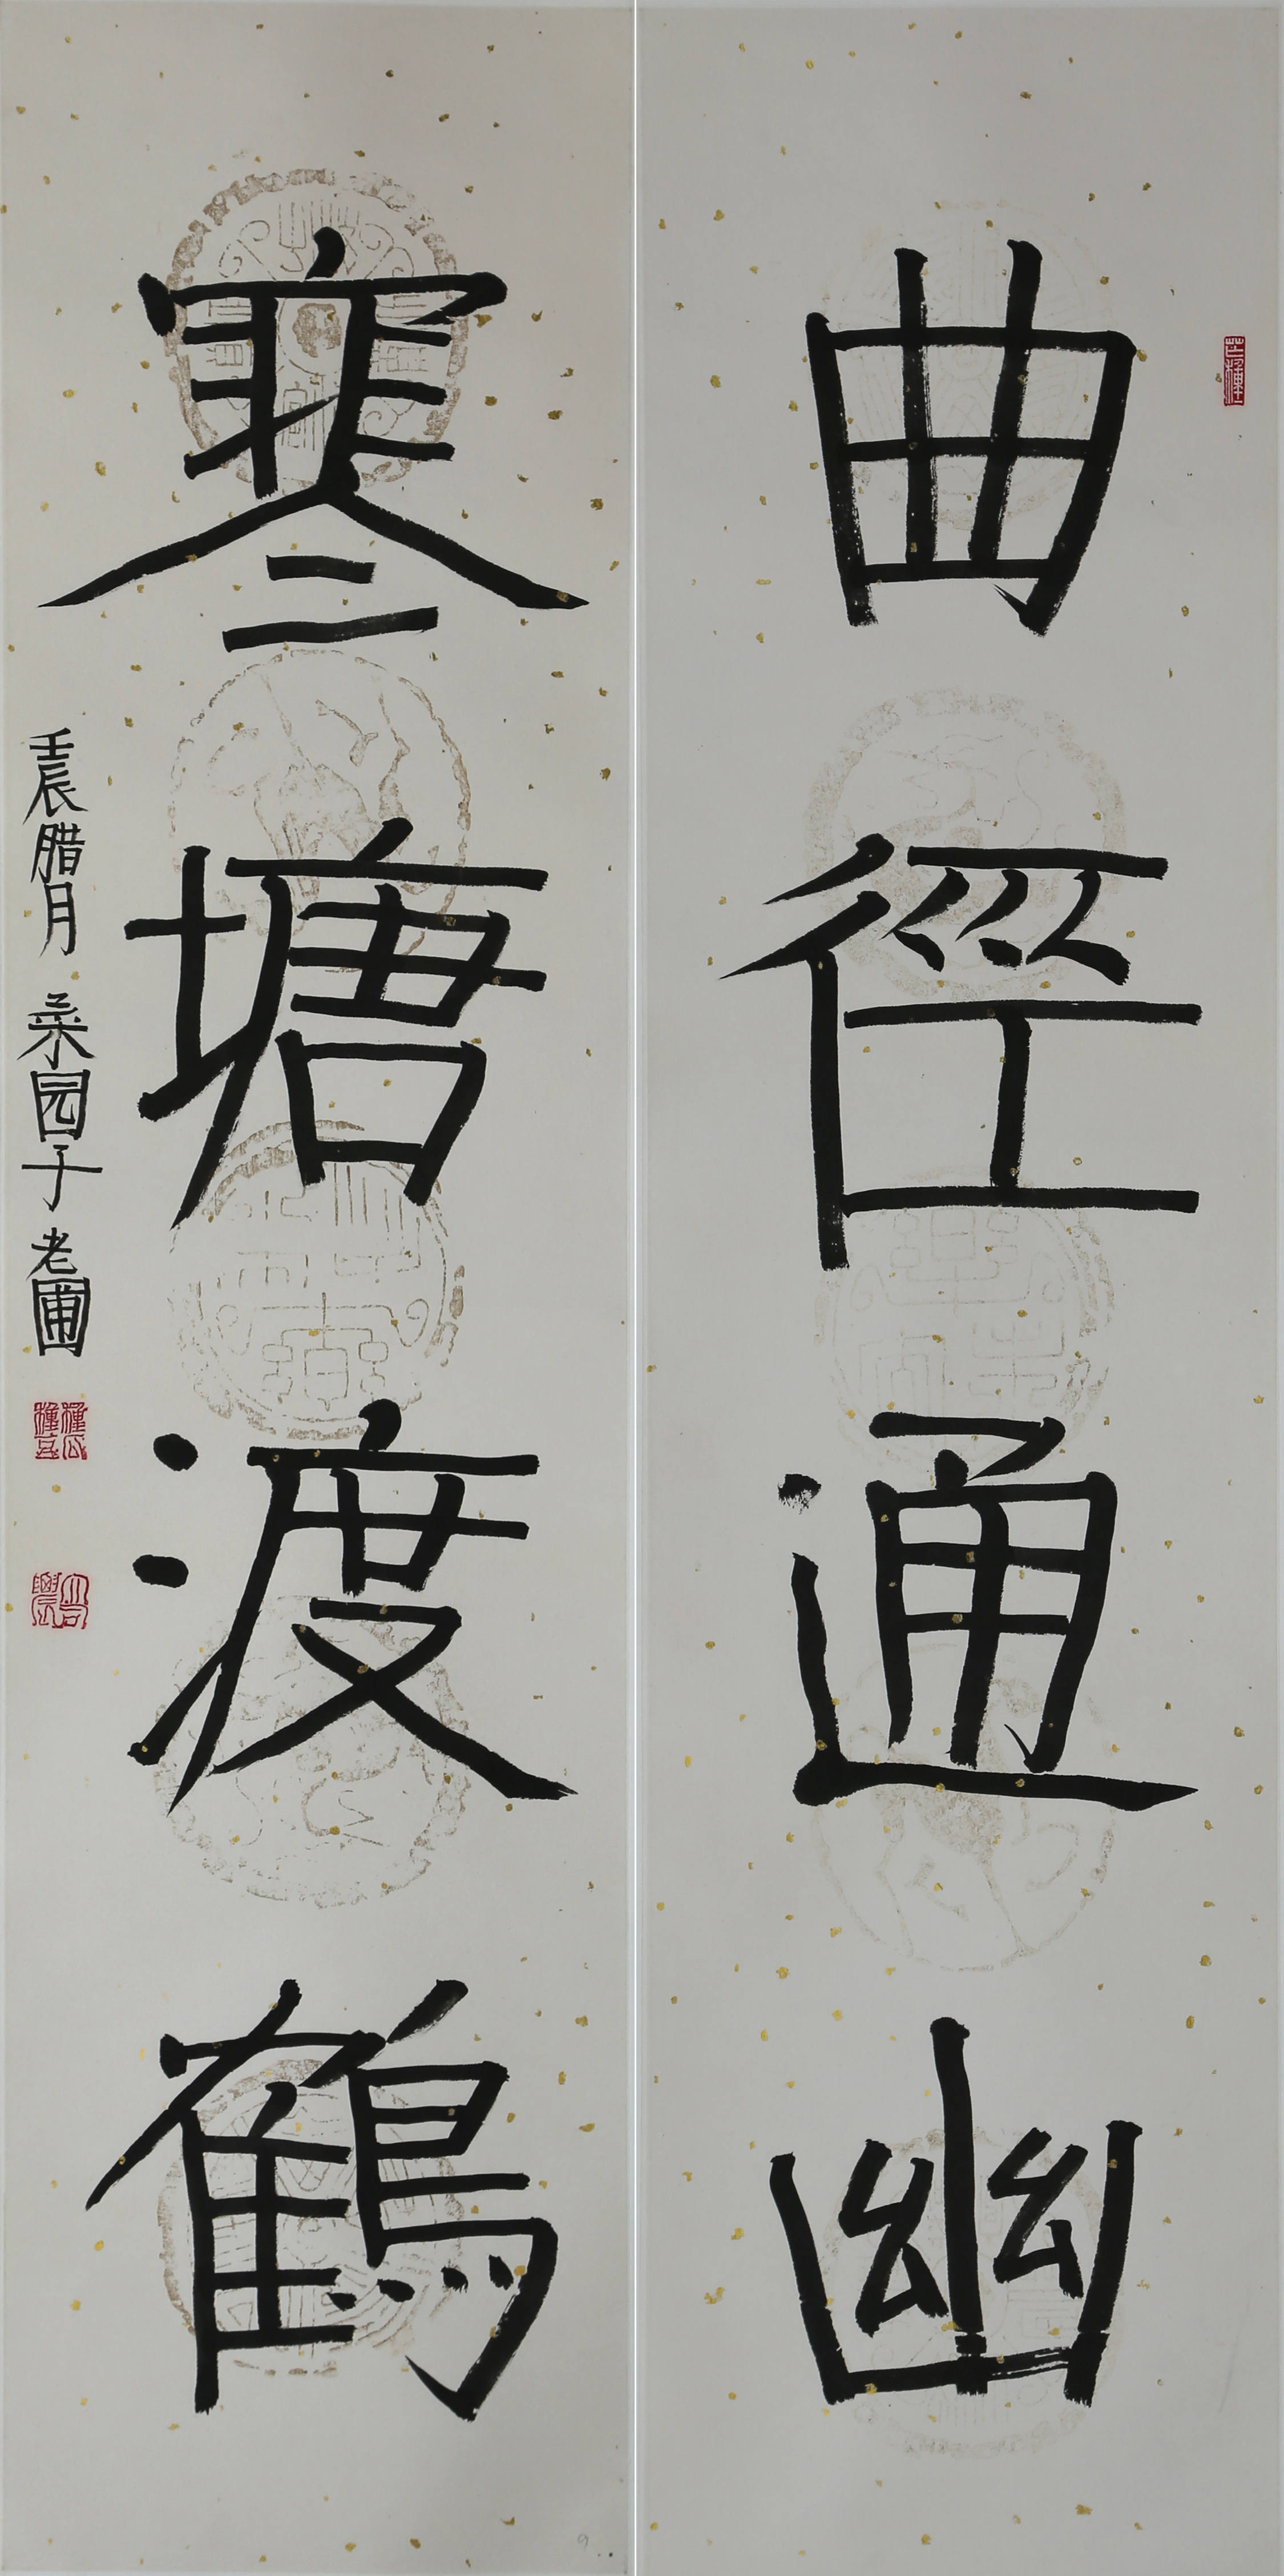 曲徑通幽
寒塘渡鶴
壬辰腊月 菜园子 老圃